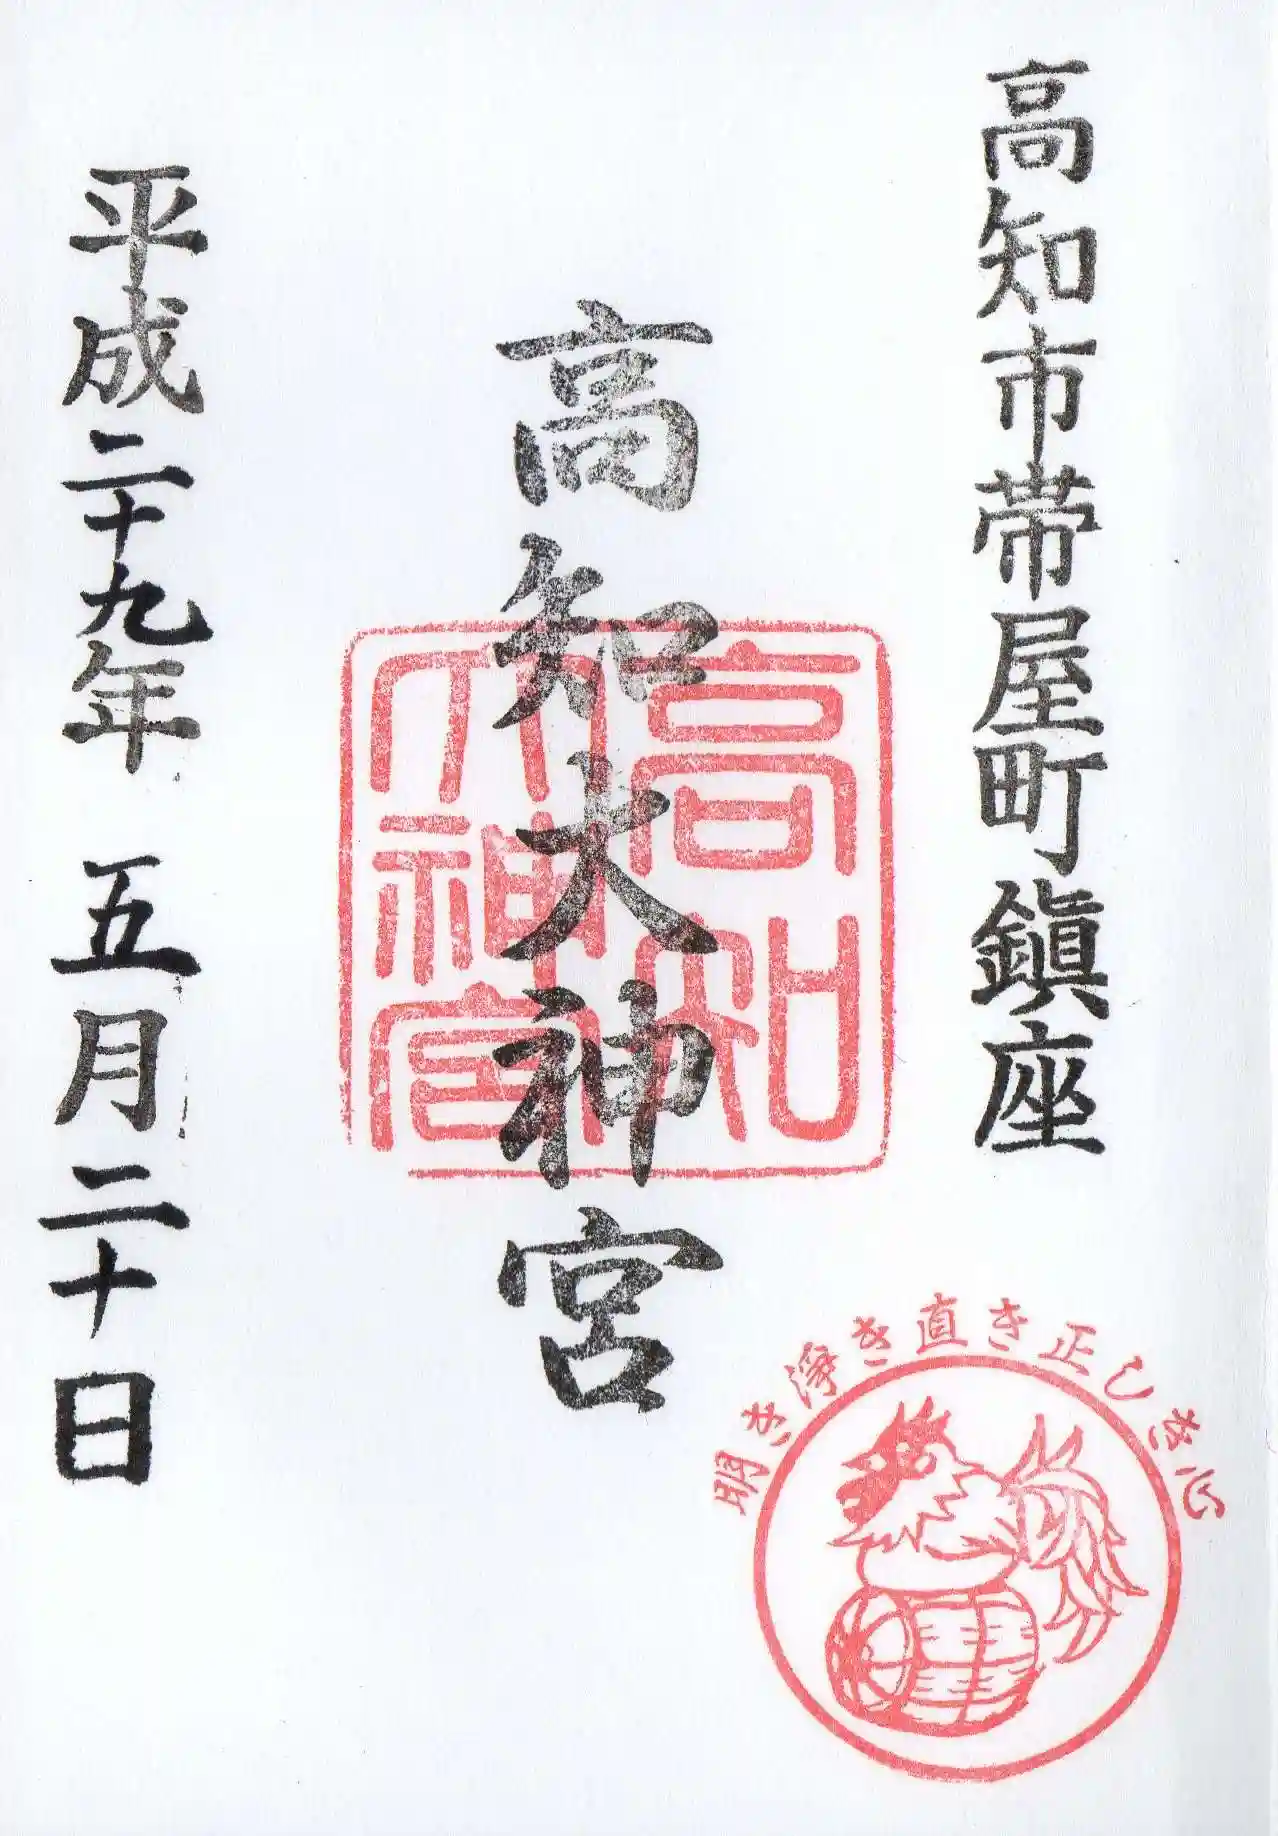 高知市帯屋町鎮座
高知大神宮
高知
大神宮
平成二十九年 五月二十日
明き浄き直き正しき心